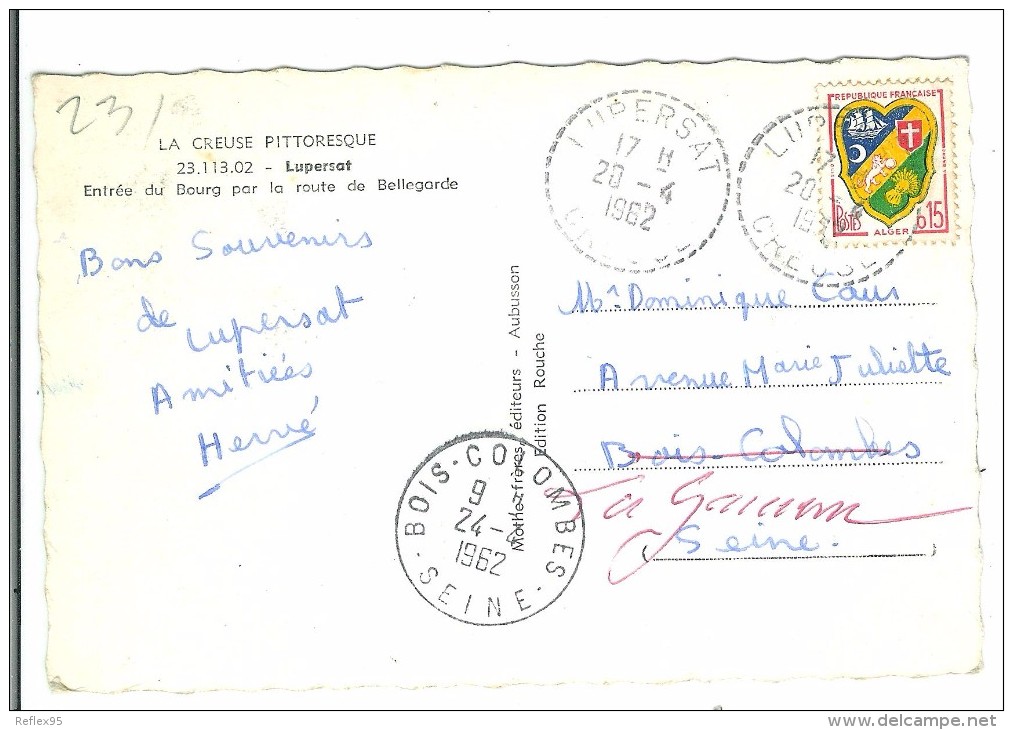 231
LA CREUSE PITTORESQUE
23.113.02 - Lupersat
Entrée du Bourg par la route de Bellegarde
Bons Souvenirs
de Lupersat
Amitiées
Hervé
Mothe frères, éditeurs - Aubusson
Edition Rouche
LUPERSAT
17 H
20 - 4
1962
CREUSE
LUP
17
20
19
CREUSE
REPUBLIQUE FRANÇAISE
POSTES
ALGER
0.15
Mr Dominique
Avenue Marie Juliette
Bois-Colombes
La Garenne
(Seine.)
BOIS-COLOMBES
9 H
24 - 4
1962
- SEINE -
Reflex95
www.delcampe.net